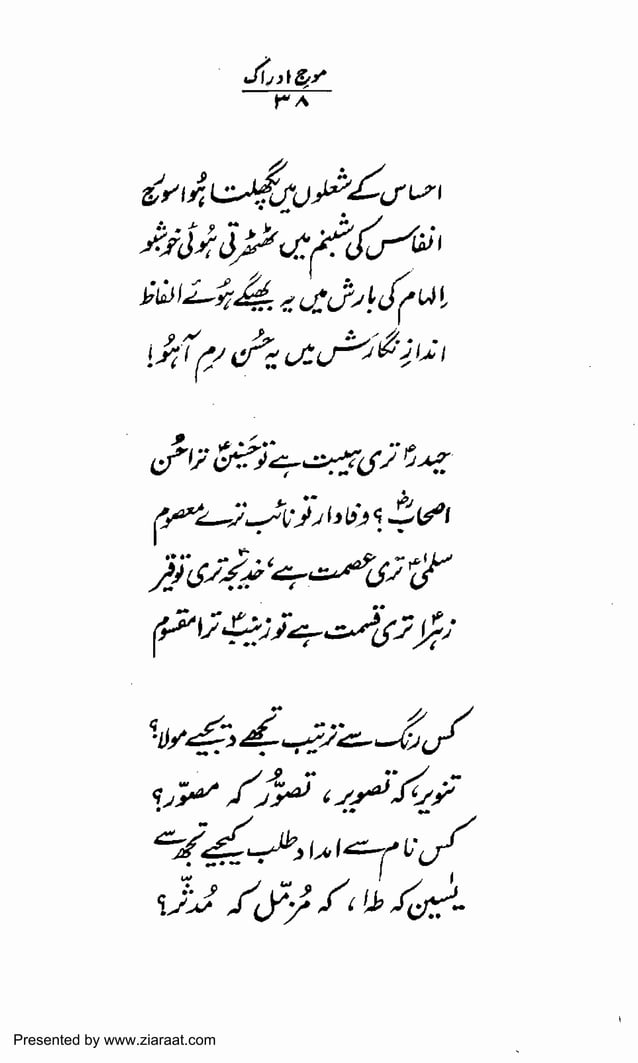 موجِ ادراک
۳۸
احساس کے شعلوں میں پگھلتا ہُوا سورج
انفاس کی شبنم میں ٹھٹھرتی ہُوئی خوشبو
اِلہام کی بارش میں یہ بھیگے ہُوئے الفاظ
اندازِ نگارش میں یہ حُسن رمِ آہُو!
حیدرؑ تری ہیبت ہے تو حَسنینؑ ترا حُسن
اصحابؓ؟ وفادار تو نائب ترے معصوم
سلمیٰؑ تری عصمت ہے، خدیجہؑ تری توقیر
زہراؑ تری قسمت ہے تو زینبؑ ترا مقسوم
کس رنگ سے ترتیب تجھے دیجیے مولا؟
تنویر، کہ تصویر، تصوُّر کہ مصوّر؟
کس نام سے امداد طلب کیجیے تجھ سے
یٰسین کہ طہٰ، کہ مُزمّل کہ مُدثّر؟
Presented by www.ziaraat.com